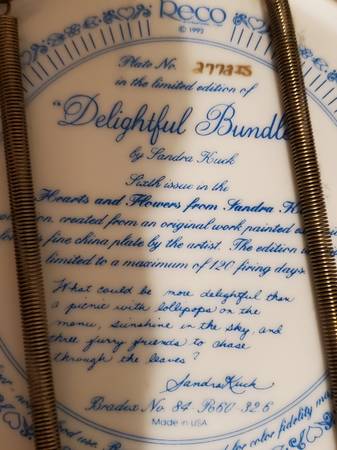 Reco
© 1992
Plate No. 27725
in the limited edition of
"Delightful Bundle
by Sandra Kuck
Sixth issue in the
Hearts and Flowers from Sandra K
created from an original work painted
fine china plate by the artist. The edition
limited to a maximum of 120 firing days.
What could be more delightful than
a picnic with lollipops on the
menu, sunshine in the sky, and
three furry friends to chase
through the leaves?
Sandra Kuck
Bradex No. 84-R60-32.6
Made in USA